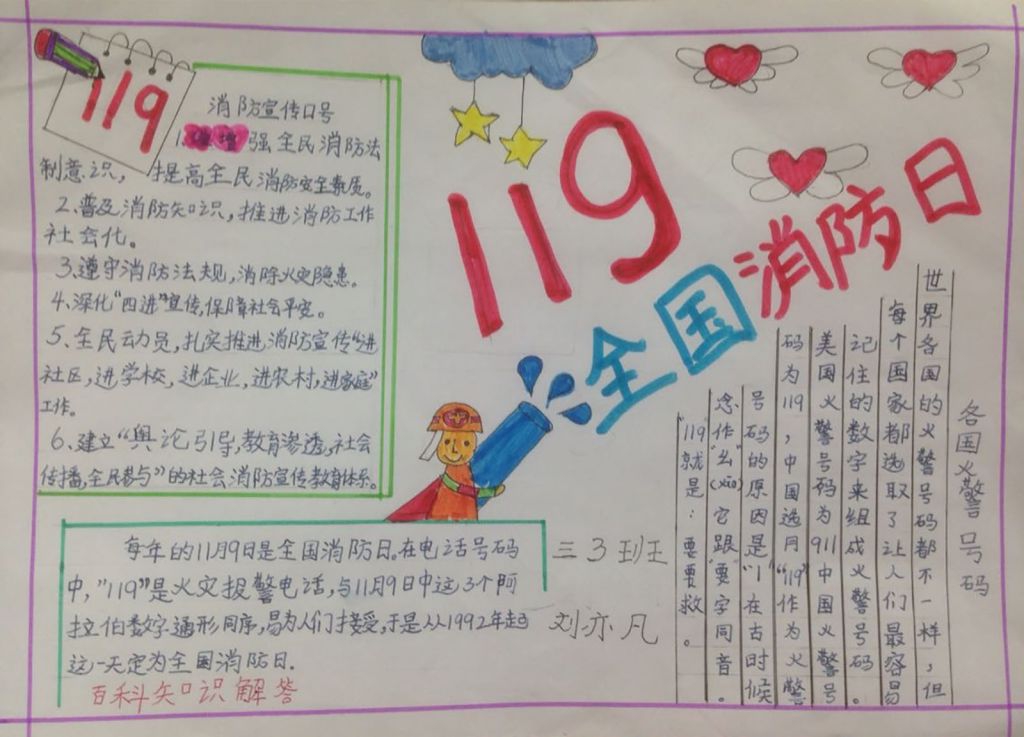 119
消防宣传口号
1.增强全民消防法
制意识，提高全民消防安全素质。
2.普及消防知识，推进消防工作
社会化。
3.遵守消防法规，消除火灾隐患。
4.深化“四进”宣传，保障社会平安。
5.全民动员，扎实推进消防宣传“进
社区，进学校，进企业，进农村，进家庭”
工作。
6.建立“舆论引导，教育渗透，社会
传播，全民参与”的社会消防宣传教育体系。
119
全国消防日
每年的11月9日是全国消防日。在电话号码
中，"119"是火灾报警电话，与11月9日中这3个阿
拉伯数字通形同序，易为人们接受，于是从1992年起
这一天定为全国消防日.
百科知识解答
三3班
刘亦凡
各国火警号码
世界各国的火警号码都不一样，但
每个国家都选取了让人们最容易
记住的数字来组成火警号码。
美国火警号码为911中国火警号
码为119，中国选用“119”作为火警
号码的原因是“1”在古时候
念作幺(yāo)它跟“要”字同音。
"119就是：要要救。